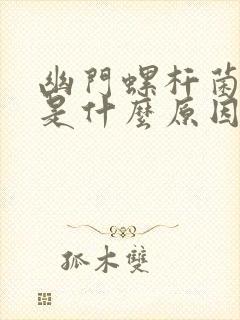 幽門螺杆菌
是什麼原因
狐木雙